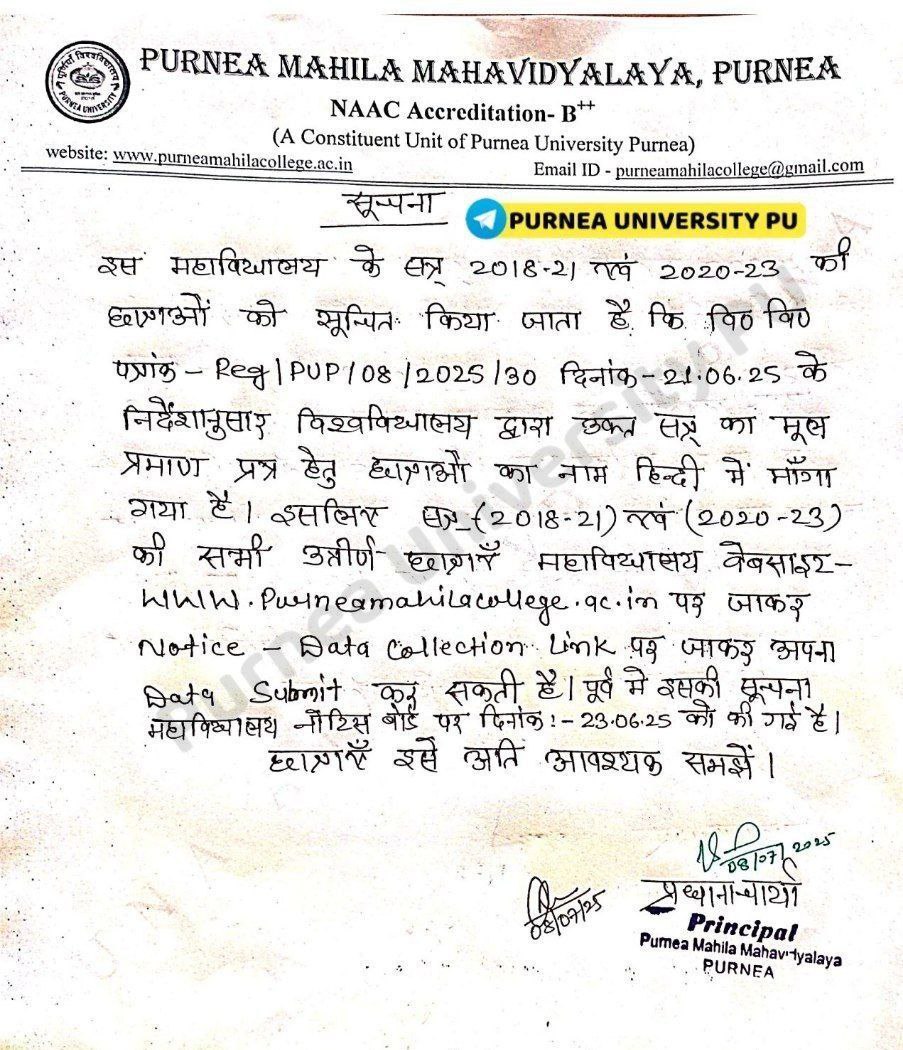 PURNEA MAHILA MAHAVIDYALAYA, PURNEA
NAAC Accreditation- B++
(A Constituent Unit of Purnea University Purnea)
website: www.purneamahilacollege.ac.in Email ID - purneamahilacollege@gmail.com
सूचना
PURNEA UNIVERSITY PU
इस महाविद्यालय के सत्र 2018-21 एवं 2020-23 की
छात्राओं को सूचित किया जाता है कि वि० वि०
पत्रांक - Reg/PUP/08/2025/30 दिनांक-21.06.25 के
निर्देशानुसार विश्वविद्यालय द्वारा उक्त सत्र का मूल
प्रमाण पत्र हेतु छात्राओं का नाम हिन्दी में माँगा
गया है। इसलिए सत्र-(2018-21) एवं (2020-23)
की सभी उत्तीर्ण छात्राएँ महाविद्यालय वेबसाइट-
www.purneamahilacollege.ac.in पर जाकर
Notice - Data Collection Link पर जाकर अपना
Data Submit कर सकती है। पूर्व मे इसकी सूचना
महाविद्यालय नोटिस बोर्ड पर दिनांक:- 23.06.25 को की गई है।
छात्राएँ इसे अति आवश्यक समझें।
08/07/2025
08/07/25
प्रधानाचार्या
Principal
Purnea Mahila Mahavidyalaya
PURNEA
Purnea University PU